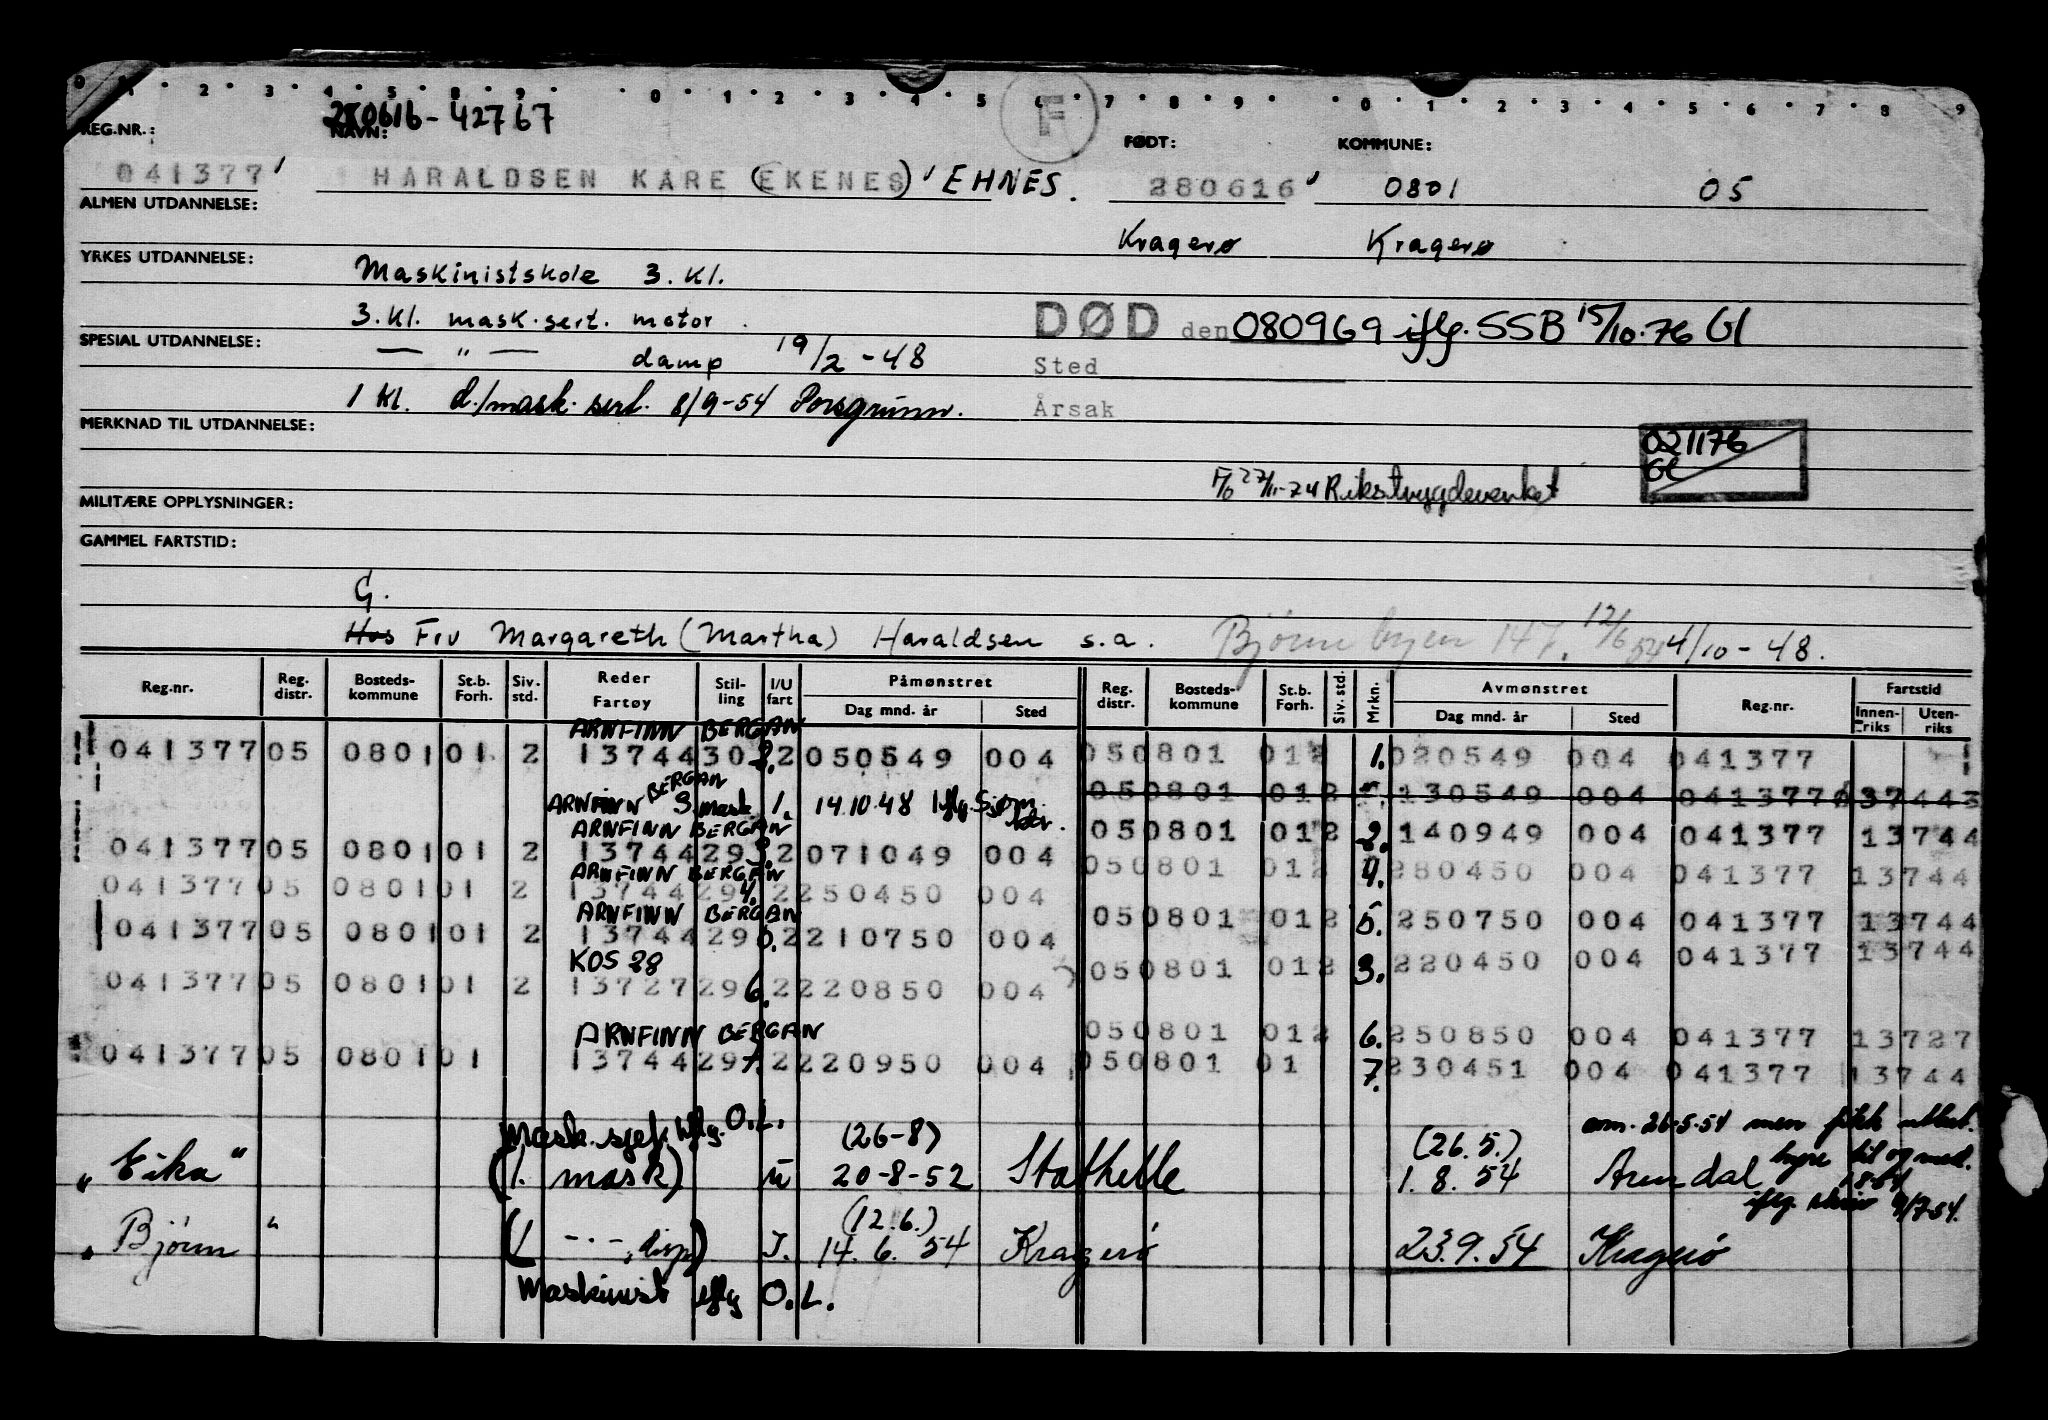 0 1 2 3 4 5 8 9 0 1 2 3 4 5 6 7 8 9 0 1 2 3 4 5 6 7 8 9
280616-42767 F
REG.NR.: NAVN: FØDT: KOMMUNE:
041377 HARALDSEN KARE (EKENES) EHNES. 280616 0801 05
ALMEN UTDANNELSE:
Kragerø Kragerø
YRKES UTDANNELSE: Maskinistskole 3. kl.
3. kl. mask.sert. motor
DØD den 080969 iflg. SSB 15/10-76 Gl
SPESIAL UTDANNELSE: — " — damp 19/2-48
Sted
1 kl. d./mask. sert. 8/9-54 Porsgrunn.
Årsak
MERKNAD TIL UTDANNELSE:
021176
Gl
27/11-74 Rikstrygdeverket
MILITÆRE OPPLYSNINGER:
GAMMEL FARTSTID:
G.
Hos Frv Margareth (Martha) Haraldsen s.a. Bjørnebyen 147. 12/6 54 4/10-48.
Reg.nr. Reg. distr. Bosteds-kommune St.b. Forh. Siv. std. Reder Fartøy Stil-ling I/U fart Påmønstret Dag mnd. år Sted Reg. distr. Bosteds-kommune St.b. Forh. Siv. std. Mrkn. Avmønstret Dag mnd. år Sted Reg.nr. Fartstid Innen-riks Uten-riks
ARNFINN BERGAN
041377 05 0801 01 2 13744 30 2. 2 050549 004 05 0801 01 2 1. 020549 004 041377
05 0801 01 2 130549 004 041377 37443
ARNFINN BERGAN 3 mask 1. 14.10.48 iflg. Sjøm. ktr.
ARNFINN BERGAN
05 0801 01 2 2. 140949 004 041377 13744
041377 05 0801 01 2 13744 29 3. 2 071049 004
ARNFINN BERGAN
05 0801 01 2 4. 280450 004 041377 13744
041377 05 0801 01 2 13744 29 4. 2 250450 004
ARNFINN BERGAN
05 0801 01 2 5. 250750 004 041377 13744
041377 05 0801 01 2 13744 29 5. 2 210750 004
KOS 28
05 0801 01 2 3. 220450 004 041377 13744
041377 05 0801 01 2 13727 29 6. 2 220850 004
ARNFINN BERGAN
05 0801 01 2 6. 250850 004 041377 13727
041377 05 0801 01 13744 29 7. 2 220950 004 05 0801 01 7. 230451 004 041377 13744
Mask.sjef. iflg. O.L. (26-8) (26.5.) avm. 26-5-54 men fikk utbet.
"Eika" (1. mask) u 20-8-52 Stathelle 1.8.54 Arendal hyre til og med 1-8-54
iflg. skriv 9/7-54.
"Bjørn" (1 — " —, disp) I. (12.6.) 14.6.54 Kragerø 23.9.54 Kragerø
Maskinist iflg O.L.